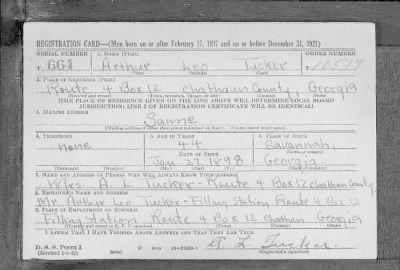 REGISTRATION CARD—(Men born on or after February 17, 1897 and on or before December 31, 1921)
SERIAL NUMBER 1. NAME (Print) ORDER NUMBER
T 664 Arthur Leo Tucker 10517
(First) (Middle) (Last)
2. PLACE OF RESIDENCE (Print)
Route 4 Box 12 Chatham County, Georgia
(Number and street) (Town, township, village, or city) (County) (State)
[THE PLACE OF RESIDENCE GIVEN ON THE LINE ABOVE WILL DETERMINE LOCAL BOARD
JURISDICTION; LINE 2 OF REGISTRATION CERTIFICATE WILL BE IDENTICAL]
3. MAILING ADDRESS
Same
[Mailing address if other than place indicated on line 2. If same insert word same]
4. TELEPHONE 5. AGE IN YEARS 6. PLACE OF BIRTH
none 44 Savannah,
DATE OF BIRTH (Town or county)
Jan 27 1898 Georgia
(Exchange) (Number) (Mo.) (Day) (Yr.) (State or country)
7. NAME AND ADDRESS OF PERSON WHO WILL ALWAYS KNOW YOUR ADDRESS
Mrs. A. L. Tucker - Route 4 Box 12 Chatham County
8. EMPLOYER'S NAME AND ADDRESS
Mr Arthur Leo Tucker - Filling Station Route 4 Box 12
9. PLACE OF EMPLOYMENT OR BUSINESS
Filling Station Route 4 Box 12 Chatham Georgia
(Number and street or R. F. D. number) (Town) (County) (State)
I AFFIRM THAT I HAVE VERIFIED ABOVE ANSWERS AND THAT THEY ARE TRUE.
D. S. S. Form 1
(Revised 1-1-42) A. L. Tucker